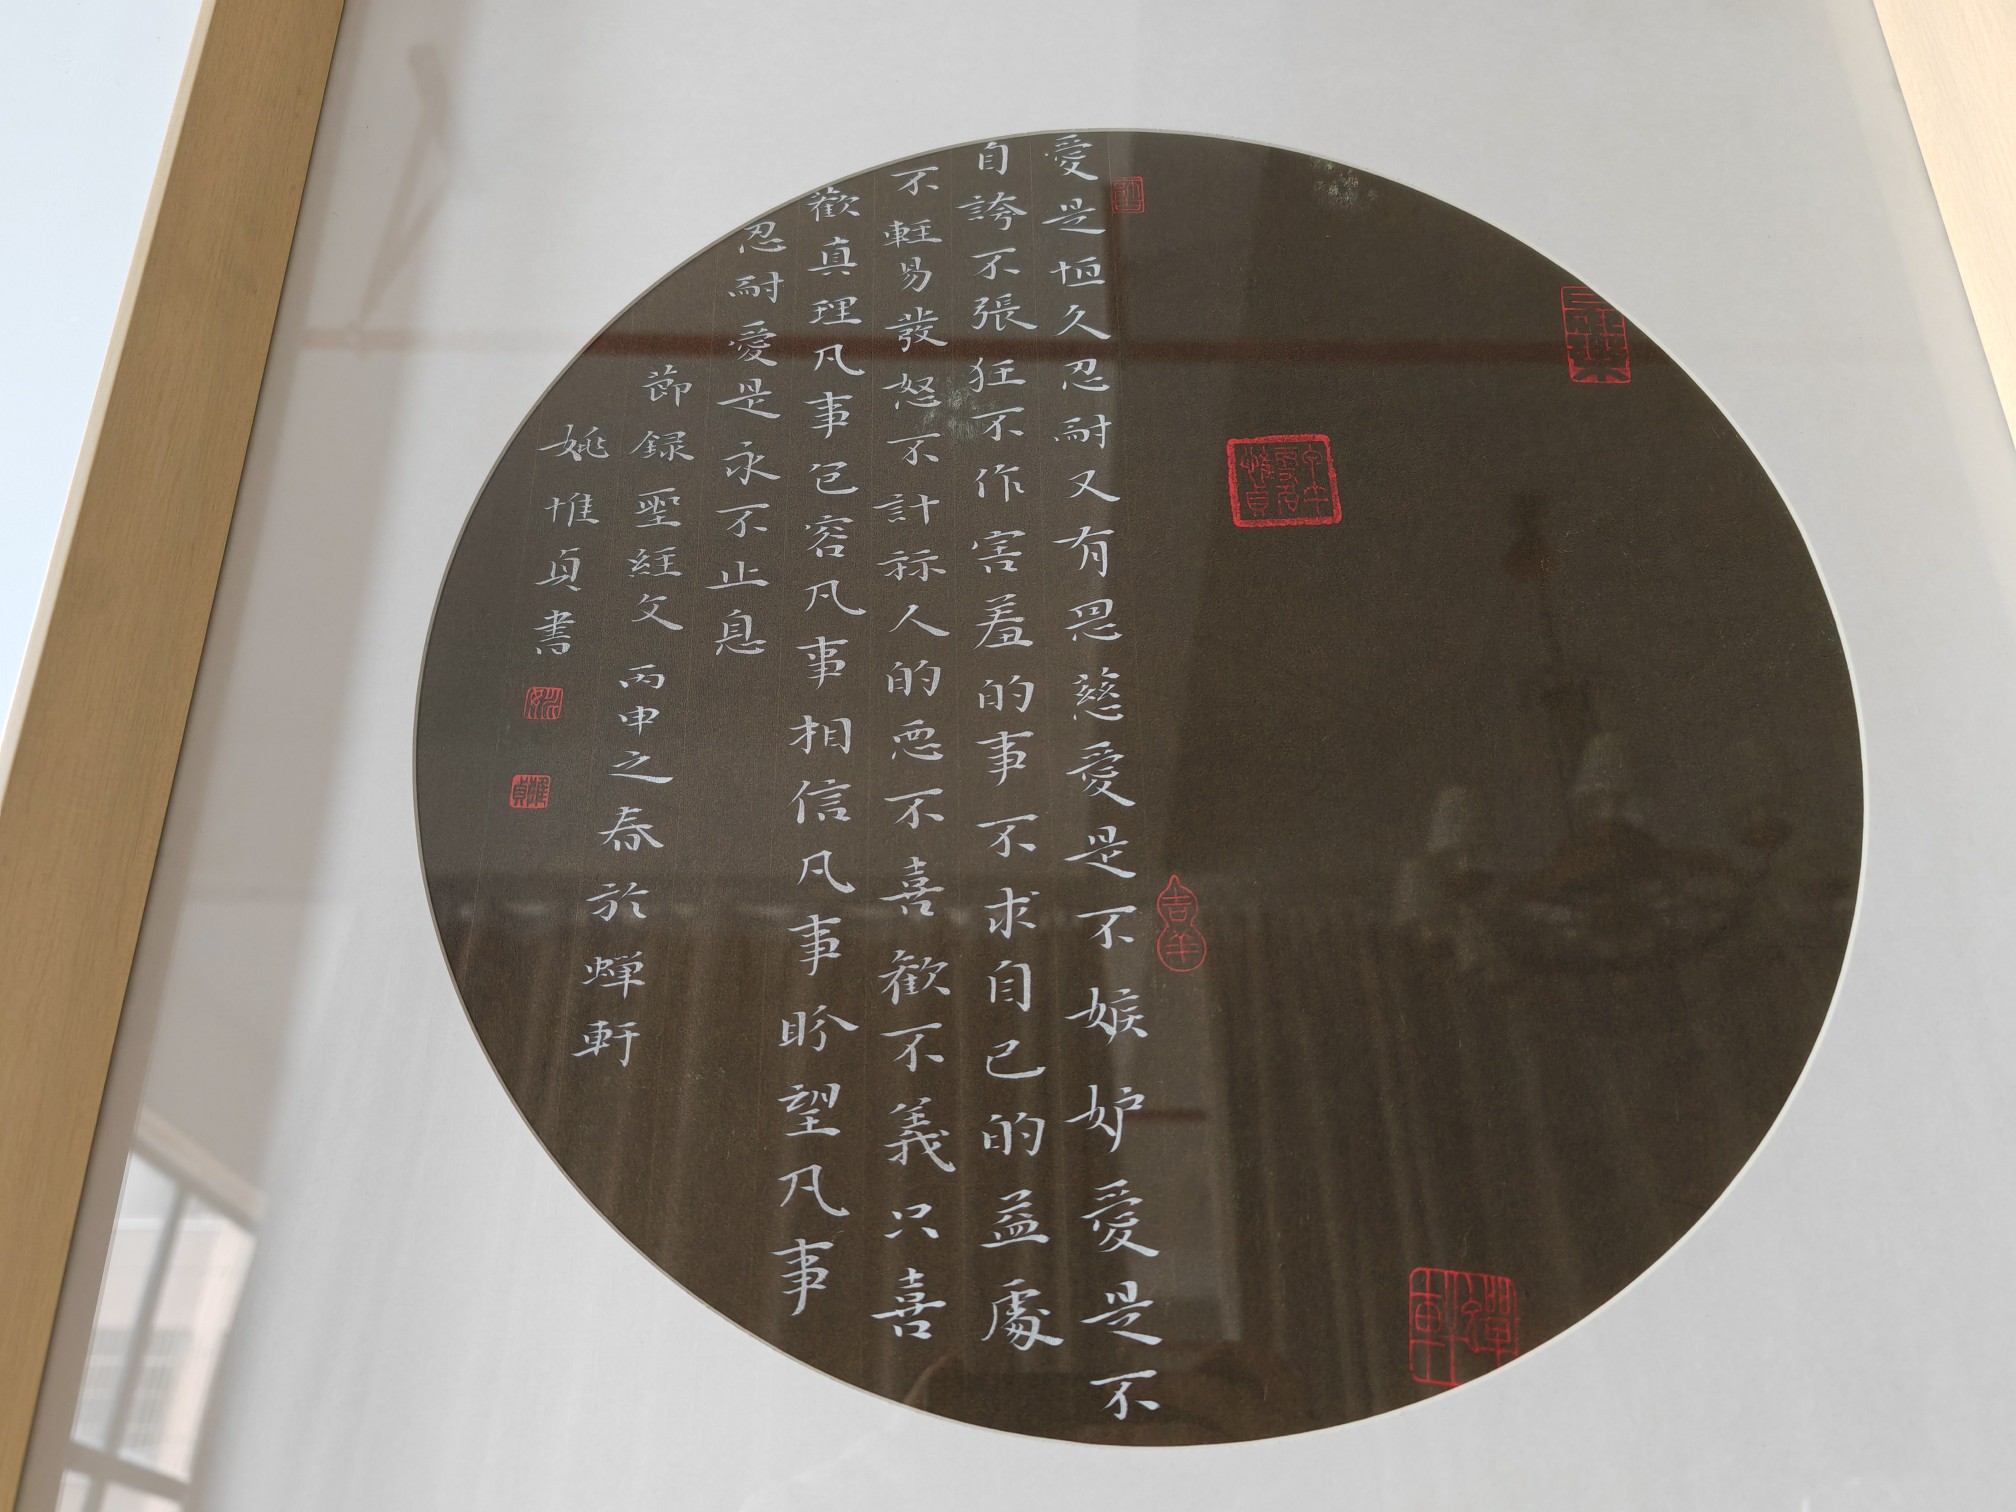 愛是恒久忍耐又有恩慈愛是不嫉妒愛是不
自誇不張狂不作害羞的事不求自己的益處
不輕易發怒不計祘人的惡不喜歡不義只喜
歡真理凡事包容凡事相信凡事盼望凡事
忍耐愛是永不止息
節録聖經文 丙申之春於蟬軒
姚惟貞書
姚
惟貞
吉羊